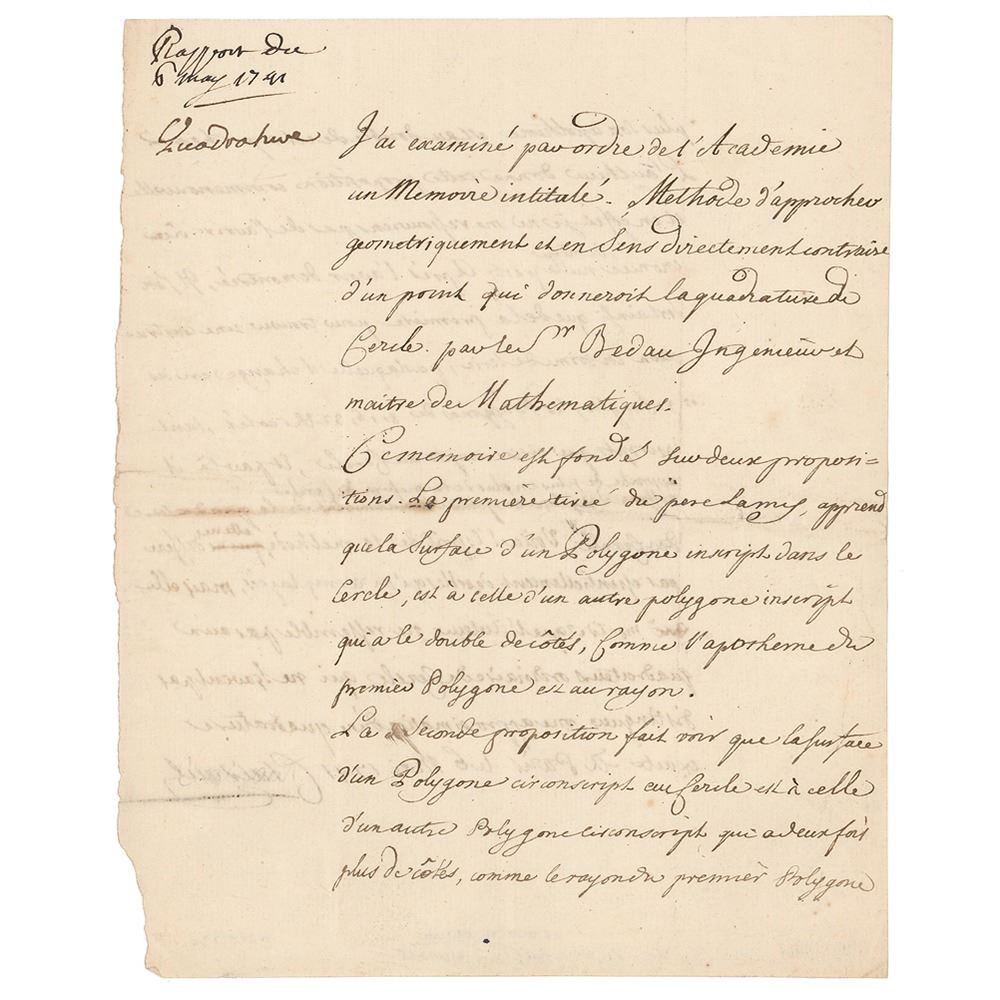 Rapport du
6 may 1741
Quadrature
J'ai examiné par ordre de l'Academie
un Memoire intitulé. Methode d'approcher
geometriquement et en Sens directement contraire
d'un point qui donneroit la quadrature du
Cercle. par le Sr Bedau Ingenieur et
maitre de Mathematiques.
Ce memoire est fondé sur deux proposi=
tions. La premiere tirée du pere Lamy, apprend
que la Surface d'un Polygone inscript dans le
Cercle, est à celle d'un autre polygone inscript
qui a le double de côtés, Comme l'apotheme du
premier Polygone est au rayon.
La Seconde proposition fait voir que la surface
d'un Polygone circonscript au Cercle est à celle
d'un autre Polygone circonscript qui a deux fois
plus de côtés, comme le rayon du premier Polygone